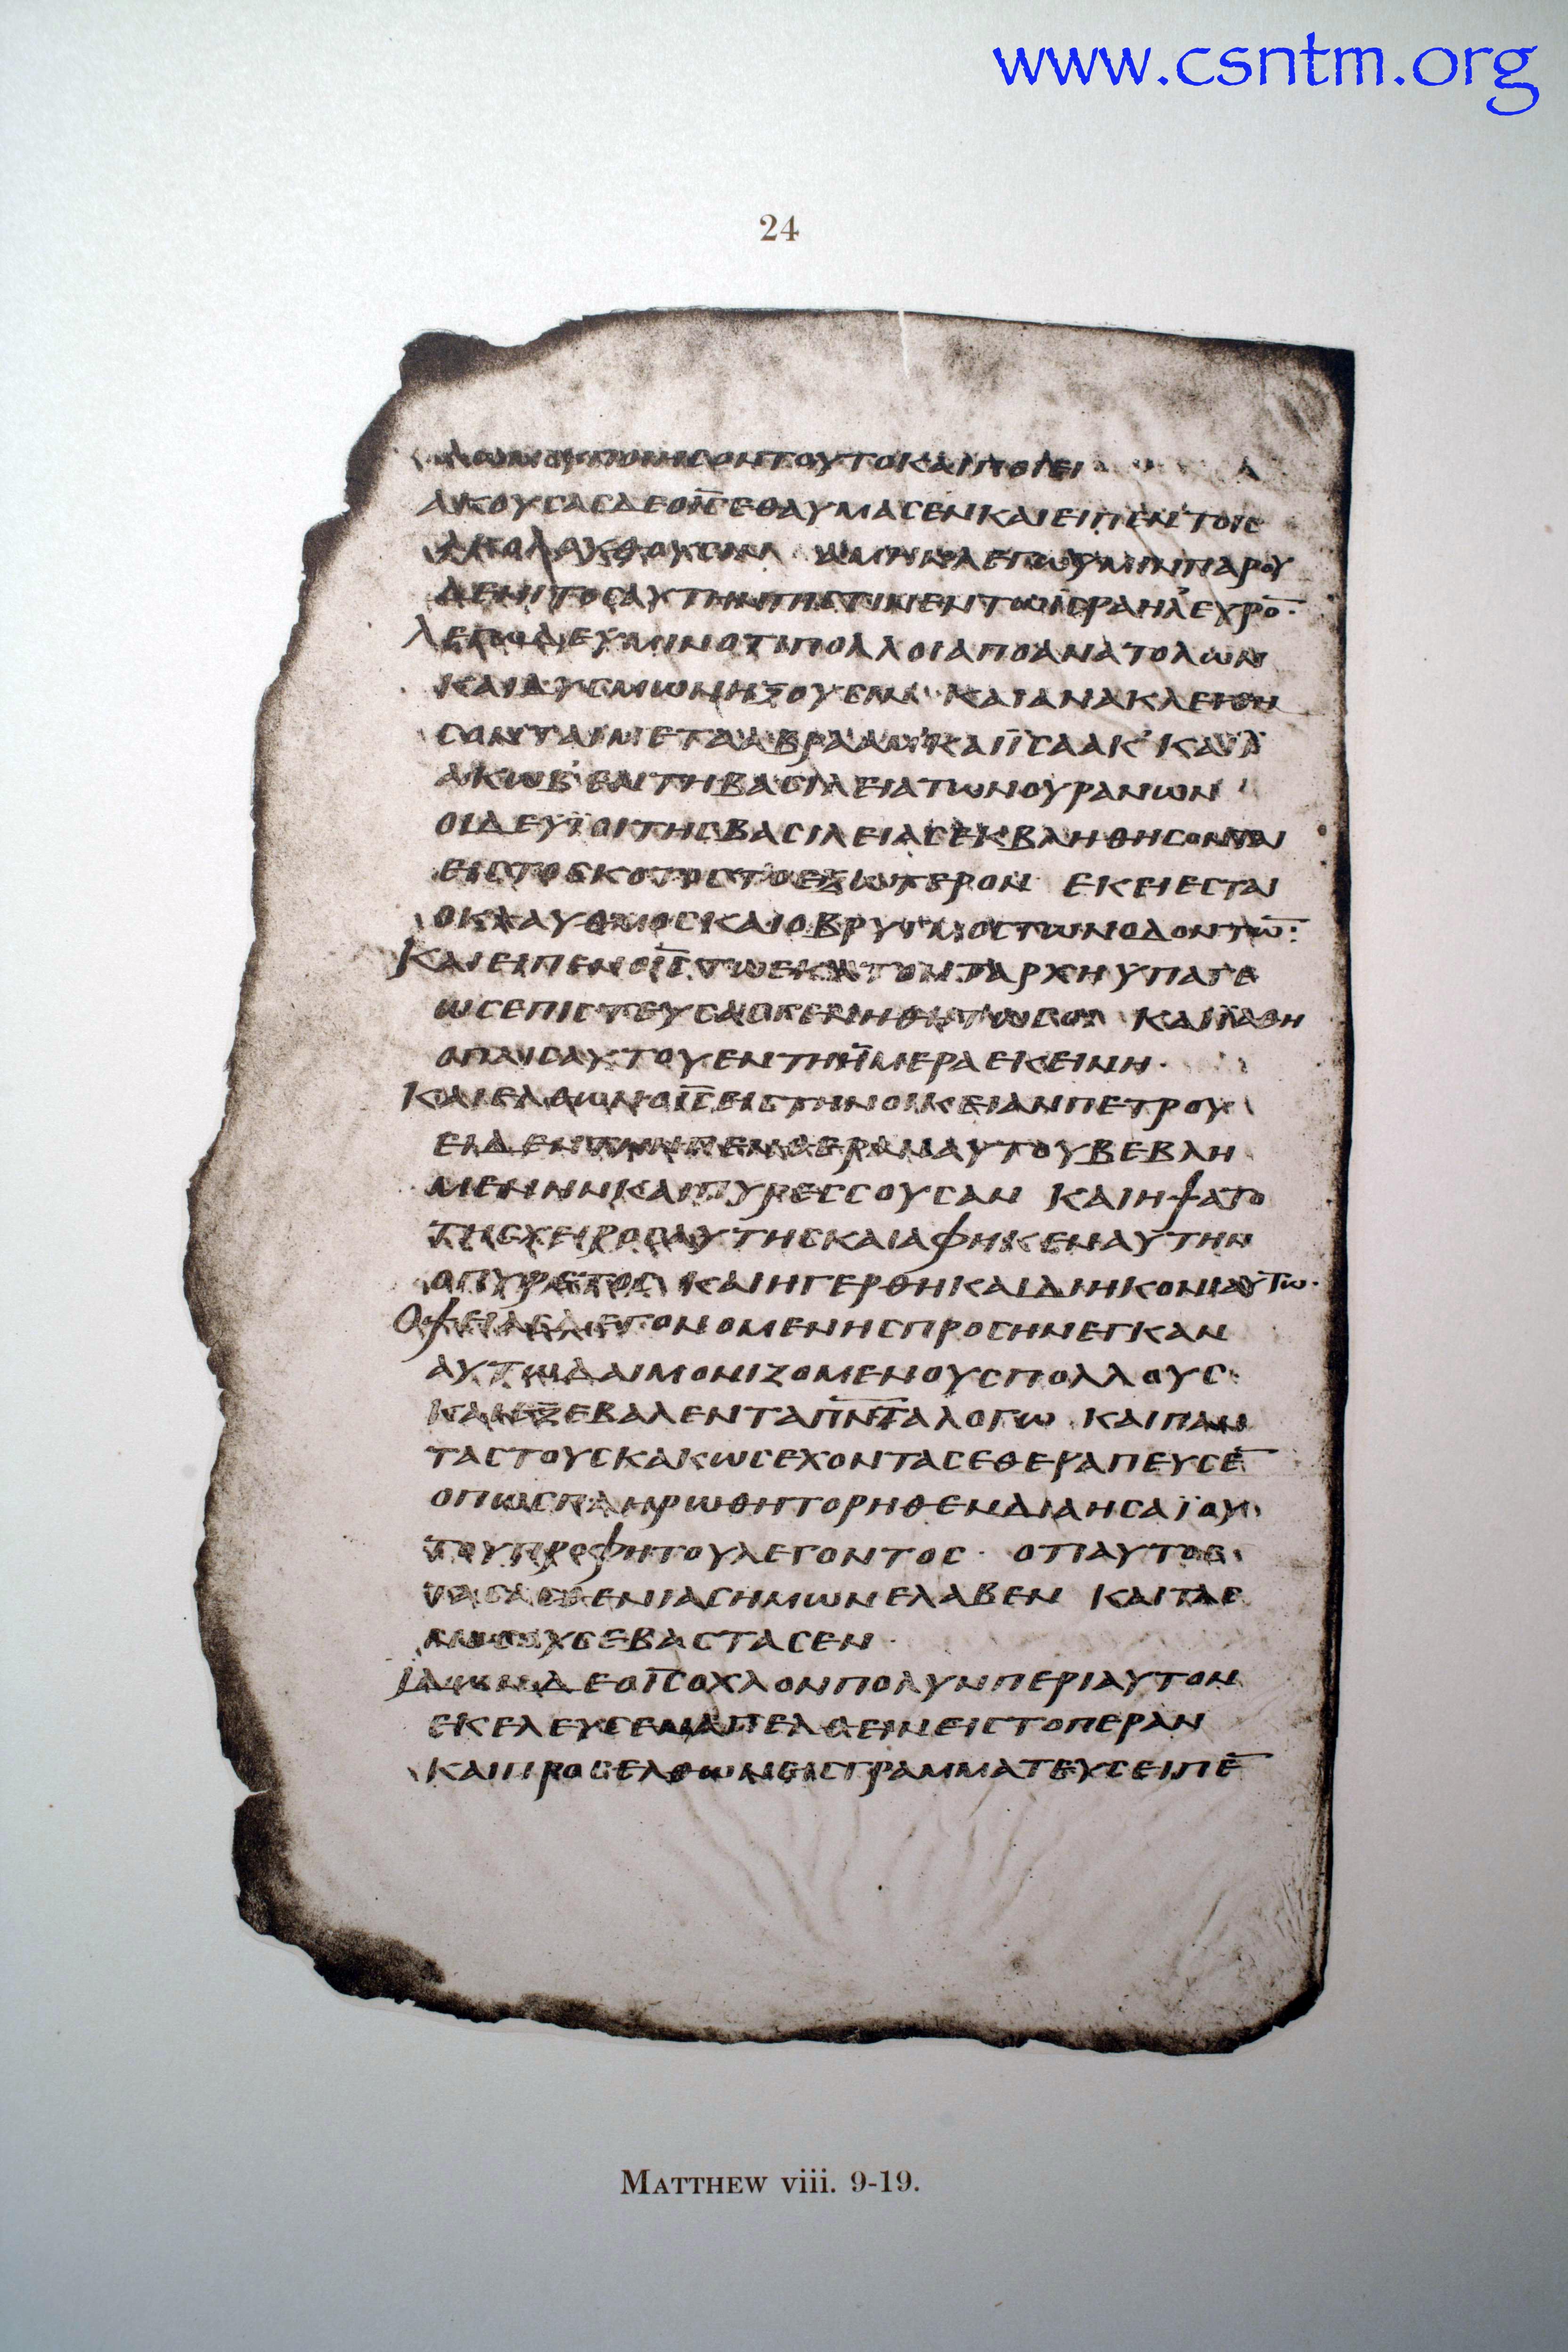 www.csntm.org
24
ΔΟΥΛΩΜΟΥΠΟΙΗϹΟΝΤΟΥΤΟΚΑΙΠΟΙΕΙ
ΑΚΟΥϹΑϹΔΕΟΙ̅Ϲ̅ΕΘΑΥΜΑϹΕΝΚΑΙΕΙΠΕΝΤΟΙϹ
ΑΚΟΛΟΥΘΟΥϹΙΝ ΑΜΗΝΛΕΓΩΥΜΙΝΠΑΡΟΥ
ΔΕΝΙΤΟϹΑΥΤΗΝΠΙϹΤΙΝΕΝΤΩΙϹΡΑΗΛΕΥΡΟ̅·
ΛΕΓΩΔΕΥΜΙΝΟΤΙΠΟΛΛΟΙΑΠΟΑΝΑΤΟΛΩΝ
ΚΑΙΔΥϹΜΩΝΗΞΟΥϹΙΝ·ΚΑΙΑΝΑΚΛΕΙΘΗ
ϹΟΝΤΑΙΜΕΤΑΑΒΡΑΑΜ'ΚΑΙΪϹΑΑΚ'ΚΑΙΪ
ΑΚΩΒ'ΕΝΤΗΒΑϹΙΛΕΙΑΤΩΝΟΥΡΑΝΩΝ
ΟΙΔΕΥΪΟΙΤΗϹΒΑϹΙΛΕΙΑϹΕΚΒΛΗΘΗϹΟΝΤΑΙ
ΕΙϹΤΟϹΚΟΤΟϹΤΟΕΞΩΤΕΡΟΝ ΕΚΕΙΕϹΤΑΙ
ΟΚΛΑΥΘΜΟϹΚΑΙΟΒΡΥΓΜΟϹΤΩΝΟΔΟΝΤΩ̅:
ΚΑΙΕΙΠΕΝΟΙ̅Ϲ̅ΤΩΕΚΑΤΟΝΤΑΡΧΗΥΠΑΓΕ
ΩϹΕΠΙϹΤΕΥϹΑϹΓΕΝΗΘΗΤΩϹΟΙ ΚΑΙΪΑΘΗ
ΟΠΑΙϹΑΥΤΟΥΕΝΤΗΗΜΕΡΑΕΚΕΙΝΗ·
ΚΑΙΕΛΘΩΝΟΙ̅Ϲ̅ΕΙϹΤΗΝΟΙΚΕΙΑΝΠΕΤΡΟΥ
ΕΙΔΕΝΤΗΝΠΕΝΘΕΡΑΝΑΥΤΟΥΒΕΒΛΗ
ΜΕΝΗΝΚΑΙΠΥΡΕϹϹΟΥϹΑΝ ΚΑΙΗΨΑΤΟ
ΤΗϹΧΕΙΡΟϹΑΥΤΗϹΚΑΙΑΦΗΚΕΝΑΥΤΗΝ
ΟΠΥΡΕΤΟϹ ΚΑΙΗΓΕΡΘΗΚΑΙΔΙΗΚΟΝΙΑΥΤΩ·
ΟΨΕΙΑϹΔΕΓΟΝΟΜΕΝΗϹΠΡΟϹΗΝΕΓΚΑΝ
ΑΥΤΩΔΑΙΜΟΝΙΖΟΜΕΝΟΥϹΠΟΛΛΟΥϹ·
ΚΑΙΕΞΕΒΑΛΕΝΤΑΠ̅Ν̅Τ̅Α̅ΛΟΓΩ ΚΑΙΠΑΝ
ΤΑϹΤΟΥϹΚΑΚΩϹΕΧΟΝΤΑϹΕΘΕΡΑΠΕΥϹΕ̅
ΟΠΩϹΠΛΗΡΩΘΗΤΟΡΗΘΕΝΔΙΑΗϹΑΪΟΥ
ΤΟΥΠΡΟΦΗΤΟΥΛΕΓΟΝΤΟϹ· ΟΤΙΑΥΤΟϹ
ΤΑϹΑϹΘΕΝΙΑϹΗΜΩΝΕΛΑΒΕΝ ΚΑΙΤΑϹ
ΝΟϹΟΥϹΕΒΑϹΤΑϹΕΝ·
ΙΔΩΝΔΕΟΙ̅Ϲ̅ΟΧΛΟΝΠΟΛΥΝΠΕΡΙΑΥΤΟΝ
ΕΚΕΛΕΥϹΕΝΑΠΕΛΘΕΙΝΕΙϹΤΟΠΕΡΑΝ
ΚΑΙΠΡΟϹΕΛΘΩΝΕΙϹΓΡΑΜΜΑΤΕΥϹΕΙΠΕ̅
MATTHEW viii. 9-19.